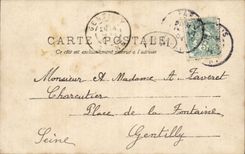 GENTILLY
CARTE POSTALE
Ce côté est exclusivement réservé à l'adresse
Monsieur & Madame A Faveret
Charcutier
Place de la Fontaine
Gentilly
Seine